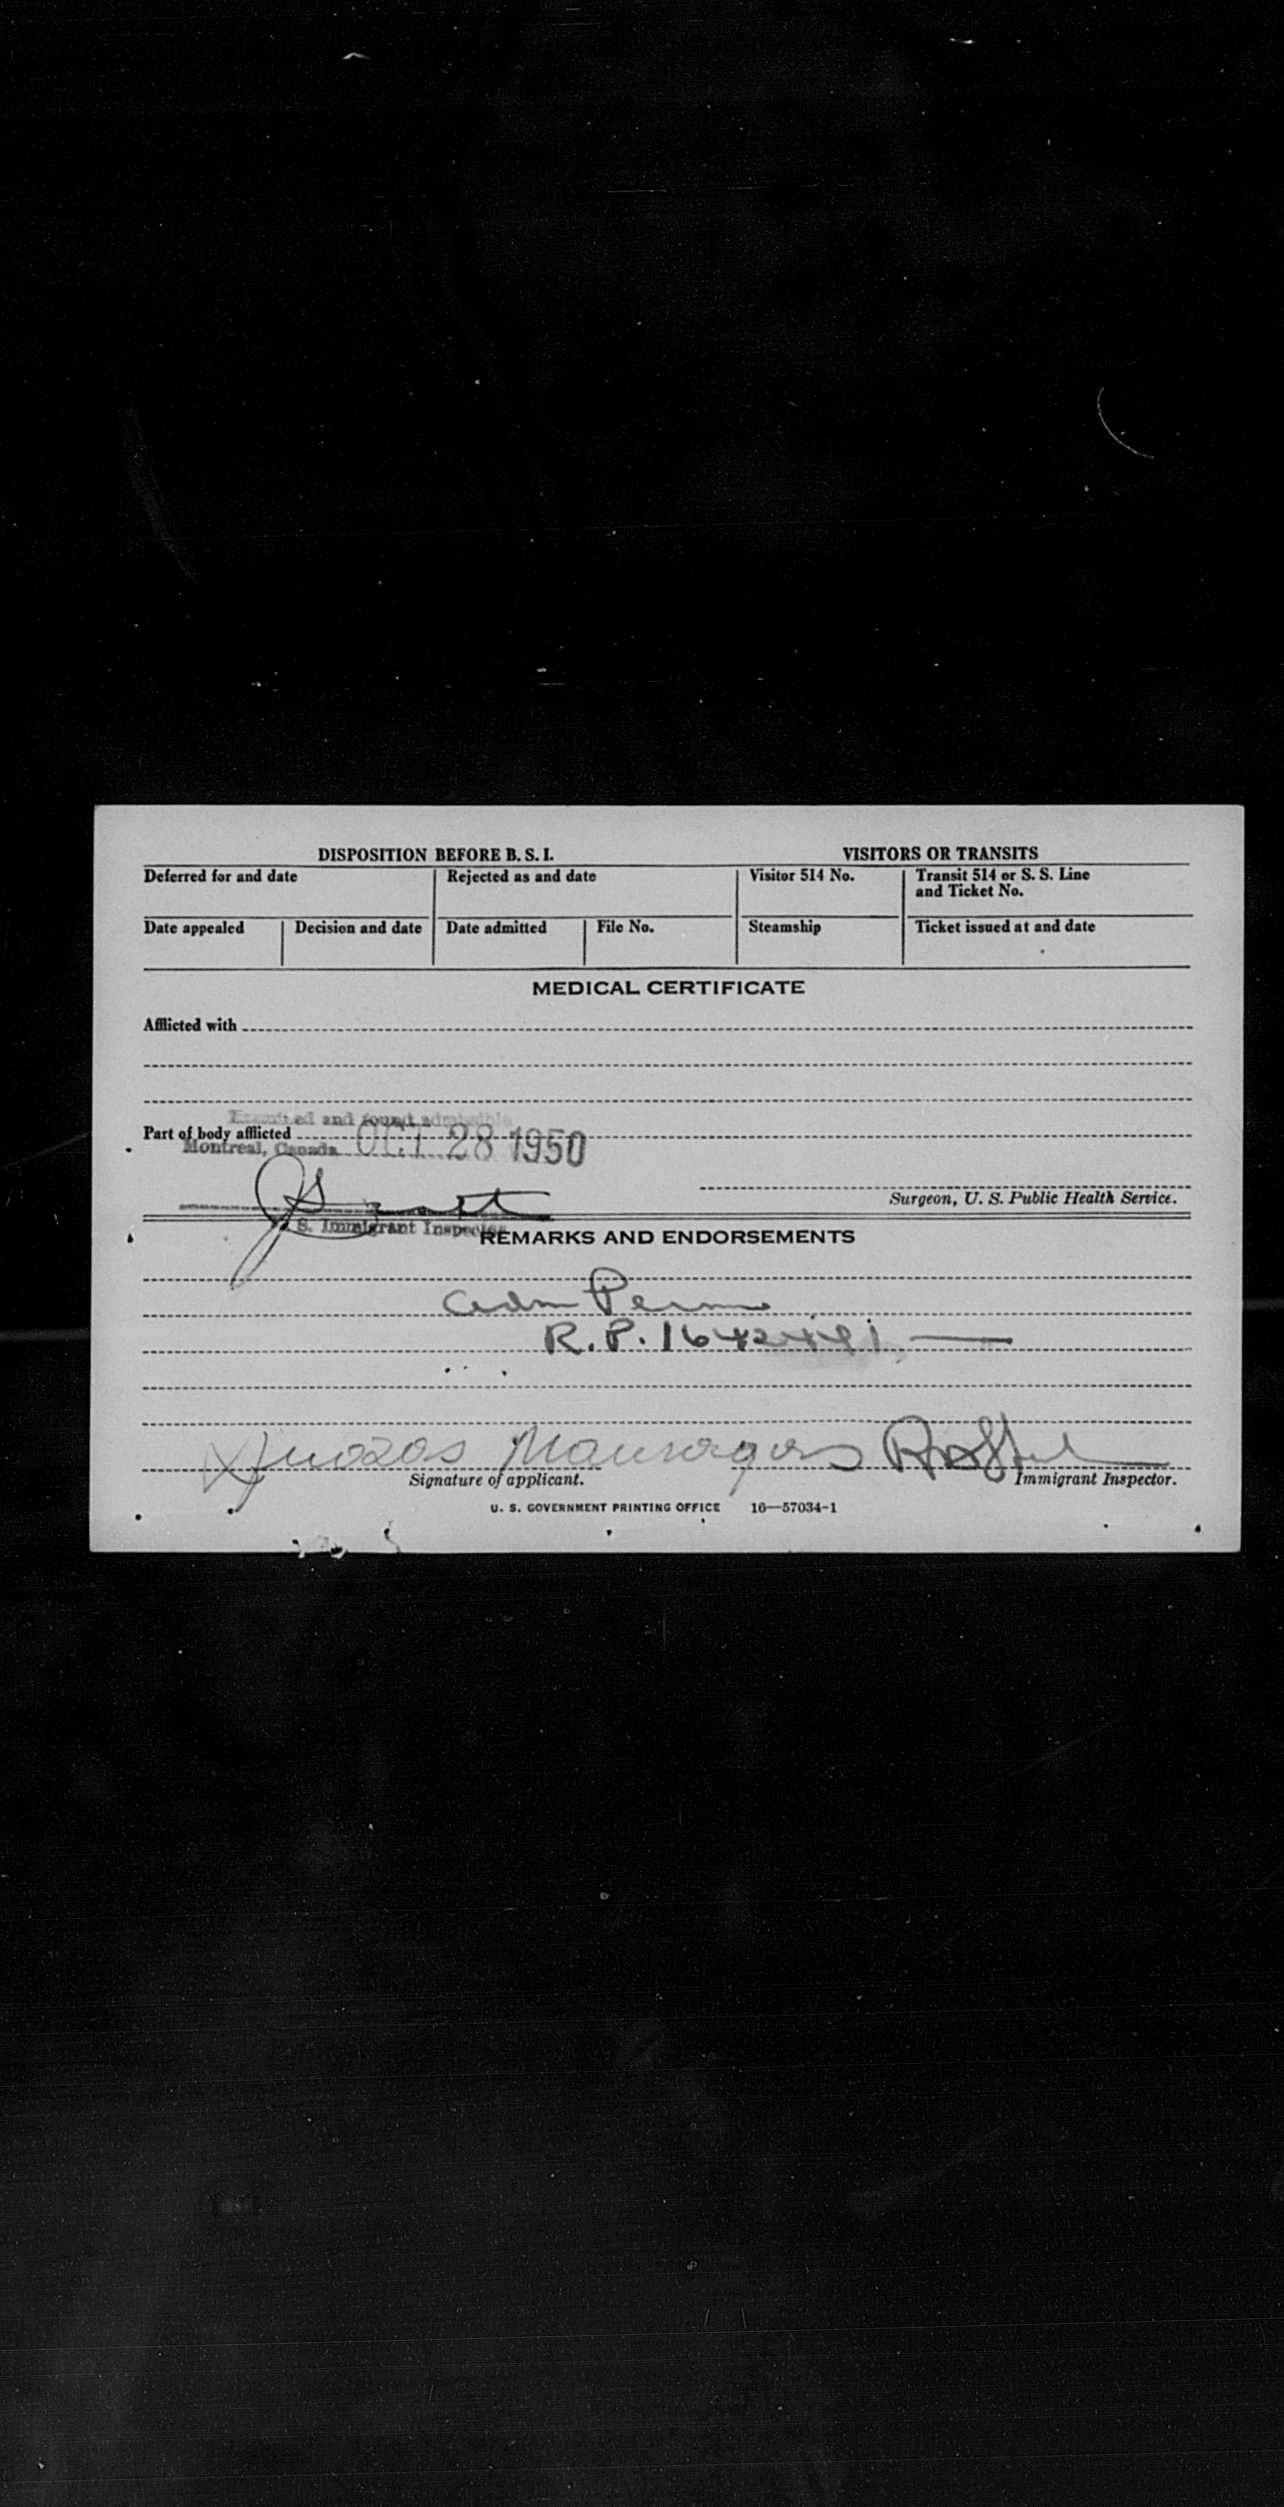 DISPOSITION BEFORE B. S. I.
VISITORS OR TRANSITS
Deferred for and date
Rejected as and date
Visitor 514 No.
Transit 514 or S. S. Line
and Ticket No.
Date appealed
Decision and date
Date admitted
File No.
Steamship
Ticket issued at and date
MEDICAL CERTIFICATE
Afflicted with
Examined and found admissible
Part of body afflicted
Montreal, Canada OCT 28 1950
Surgeon, U. S. Public Health Service.
S. Immigrant Inspector
REMARKS AND ENDORSEMENTS
Adm Perm
R.P. 1642491
Signature of applicant.
Immigrant Inspector.
U. S. GOVERNMENT PRINTING OFFICE 16—57034-1